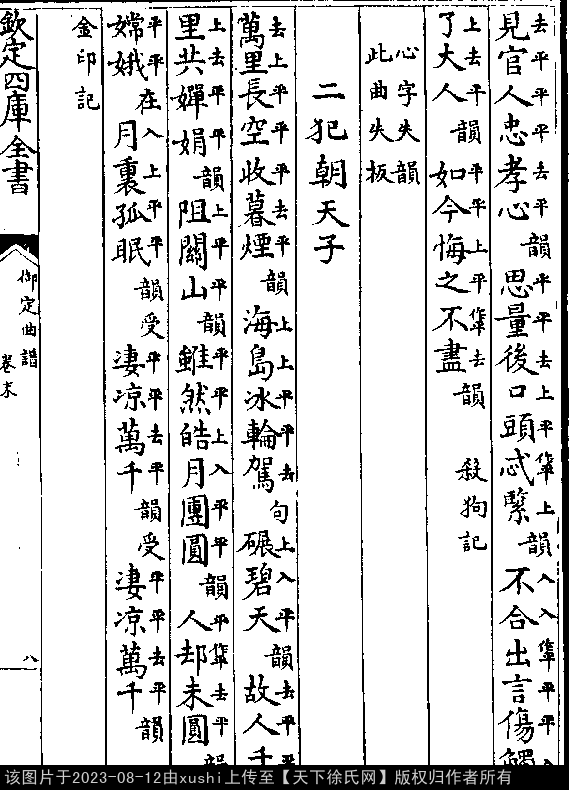 去平平平去平 平平去上平作平上 入入作平平平
見官人忠孝心韻思量後口頭忒緊韻不合出言傷觸
上去平 平平上平作平去
了大人韻如今悔之不盡韻 殺狗記
心字失韻
此曲失板
二犯朝天子
去上平平平去平 上上平平去 上入平 去平
萬里長空收暮煙韻海島冰輪駕句碾碧天韻故人千
上去平平 上平平 平平上入平平 平作平去平
里共嬋娟韻阻關山韻雖然皓月團圓韻人却未圓韻
平平去入上平平 平平去平 平平去平
嫦娥在月裏孤眠韻受凄凉萬千韻受凄凉萬千韻
金印記
欽定四庫全書
御定曲譜
卷末
八
该图片于2023-08-12由xushi上传至【天下徐氏网】版权归作者所有